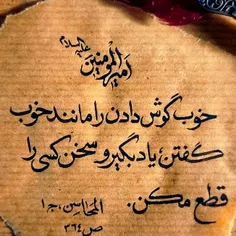 امیرالمؤمنین علیه‌السلام
خوب گوش دادن را مانند خوب
گفتن یاد بگیر و سخن کسی را
قطع مکن.
المحاسن، ج۱
ص ۳۶۴